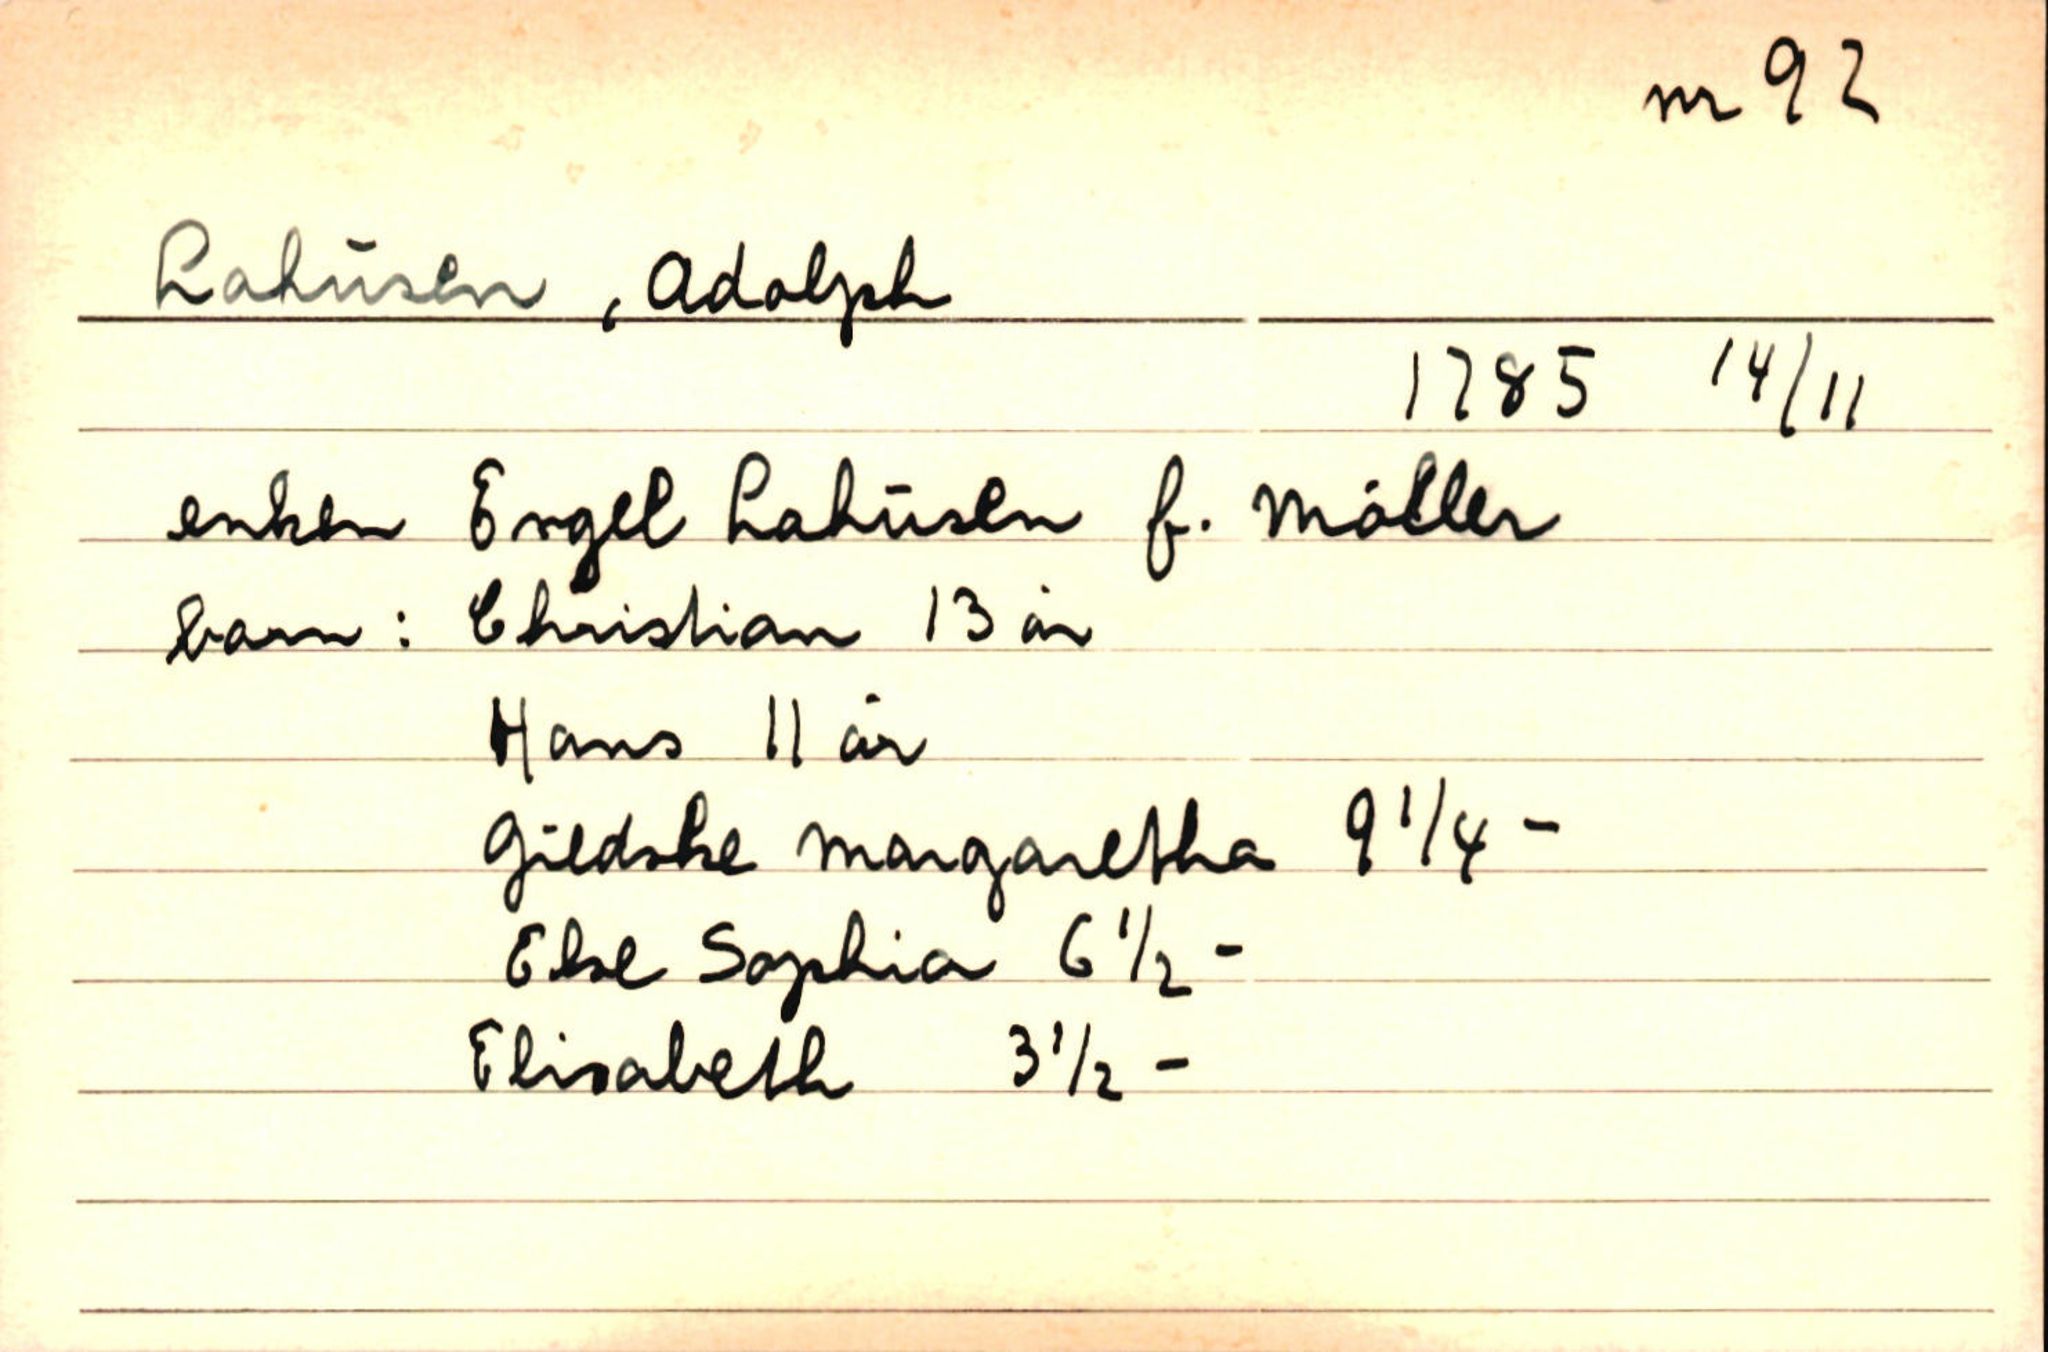 nr 92
Lahusen, Adolph
1785 14/11
enken Engel Lahusen f. Möller
barn: Christian 13 år
Hans 11 år
Giedske Margaretha 9 1/4 -
Else Sophia 6 1/2 -
Elisabeth 3 1/2 -